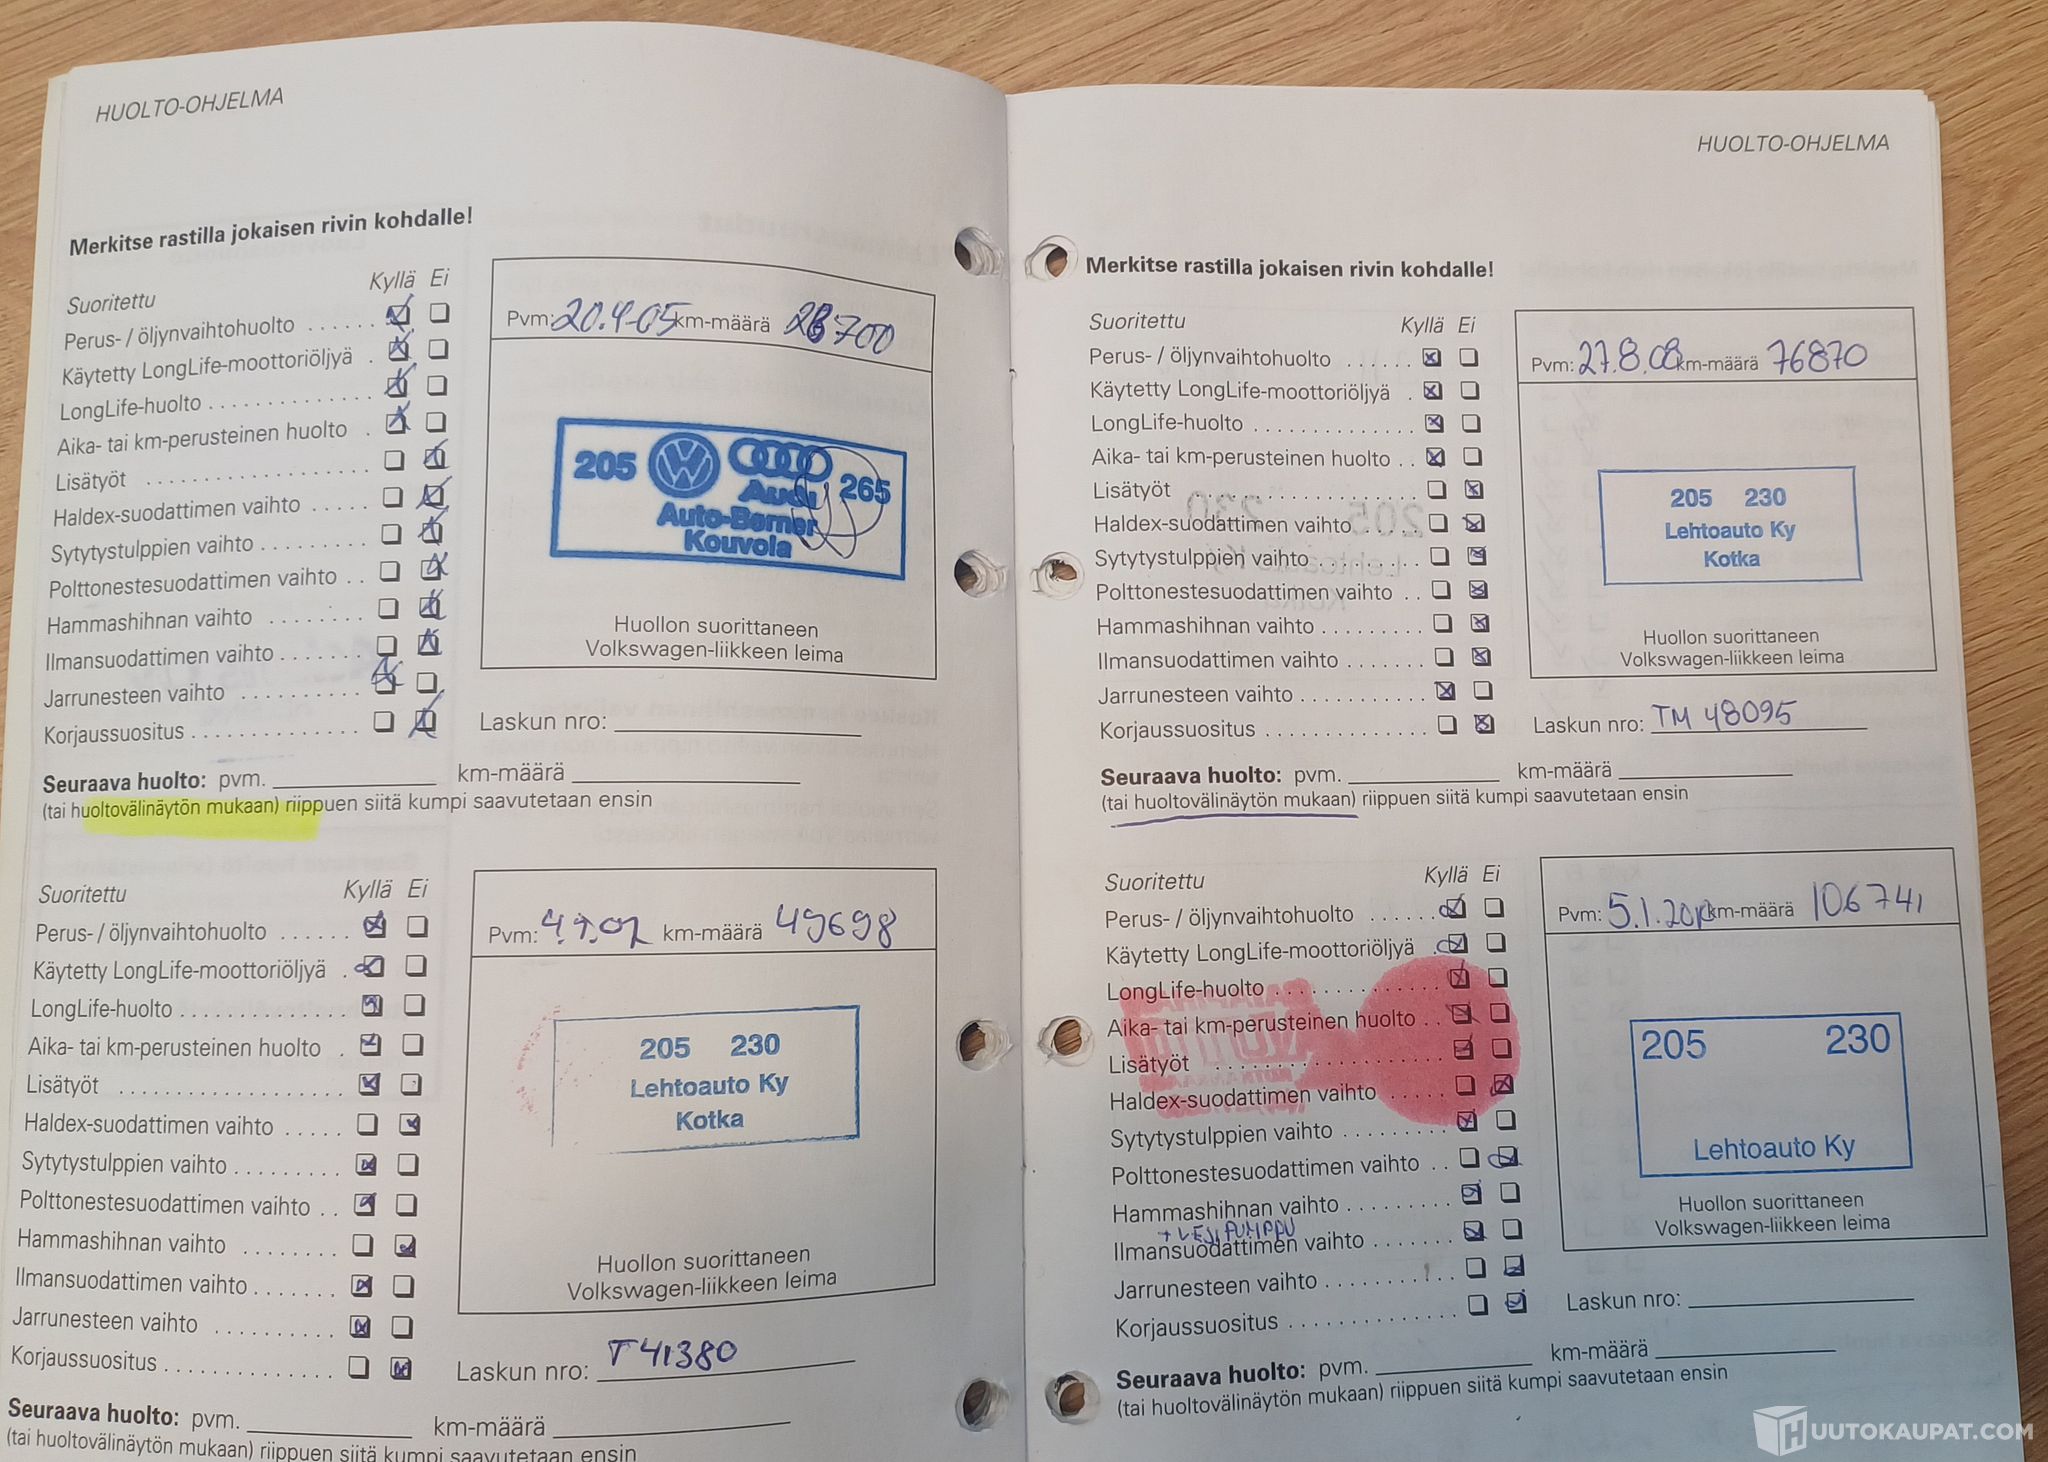 HUOLTO-OHJELMA
Merkitse rastilla jokaisen rivin kohdalle!
Suoritettu Kyllä Ei
Perus- / öljynvaihtohuolto ......
Käytetty LongLife-moottoriöljyä .
LongLife-huolto .............
Aika- tai km-perusteinen huolto .
Lisätyöt ..................
Haldex-suodattimen vaihto .....
Sytytystulppien vaihto .........
Polttonestesuodattimen vaihto ..
Hammashihnan vaihto ........
Ilmansuodattimen vaihto .......
Jarrunesteen vaihto ..........
Korjaussuositus .............
Pvm: 20.4.05 km-määrä 700
205 Audi 265
Auto-Bərner
Kouvola
Huollon suorittaneen
Volkswagen-liikkeen leima
Laskun nro:
Seuraava huolto: pvm. km-määrä
(tai huoltovälinäytön mukaan) riippuen siitä kumpi saavutetaan ensin
Suoritettu Kyllä Ei
Perus- / öljynvaihtohuolto ......
Käytetty LongLife-moottoriöljyä .
LongLife-huolto .............
Aika- tai km-perusteinen huolto .
Lisätyöt ..................
Haldex-suodattimen vaihto .....
Sytytystulppien vaihto .........
Polttonestesuodattimen vaihto ..
Hammashihnan vaihto ........
Ilmansuodattimen vaihto .......
Jarrunesteen vaihto ..........
Korjaussuositus .............
Pvm: km-määrä 49698
205 230
Lehtoauto Ky
Kotka
Huollon suorittaneen
Volkswagen-liikkeen leima
Laskun nro: T 41380
Seuraava huolto: pvm. km-määrä
(tai huoltovälinäytön mukaan) riippuen siitä kumpi saavutetaan ensin
HUOLTO-OHJELMA
Merkitse rastilla jokaisen rivin kohdalle!
Suoritettu Kyllä Ei
Perus- / öljynvaihtohuolto ......
Käytetty LongLife-moottoriöljyä .
LongLife-huolto .............
Aika- tai km-perusteinen huolto ..
Lisätyöt ..................
Haldex-suodattimen vaihto .....
Sytytystulppien vaihto .........
Polttonestesuodattimen vaihto ..
Hammashihnan vaihto ........
Ilmansuodattimen vaihto .......
Jarrunesteen vaihto ..........
Korjaussuositus .............
Pvm: 27.8.08 km-määrä 76870
205 230
Lehtoauto Ky
Kotka
Huollon suorittaneen
Volkswagen-liikkeen leima
Laskun nro: TM 48095
Seuraava huolto: pvm. km-määrä
(tai huoltovälinäytön mukaan) riippuen siitä kumpi saavutetaan ensin
Suoritettu Kyllä Ei
Perus- / öljynvaihtohuolto ......
Käytetty LongLife-moottoriöljyä .
LongLife-huolto .............
Aika- tai km-perusteinen huolto ..
Lisätyöt ..................
Haldex-suodattimen vaihto .....
Sytytystulppien vaihto .........
Polttonestesuodattimen vaihto ..
Hammashihnan vaihto ........
+ VESIPUMPPU
Ilmansuodattimen vaihto .......
Jarrunesteen vaihto ..........
Korjaussuositus .............
Pvm: km-määrä 106741
205 230
Lehtoauto Ky
Huollon suorittaneen
Volkswagen-liikkeen leima
Laskun nro:
Seuraava huolto: pvm. km-määrä
(tai huoltovälinäytön mukaan) riippuen siitä kumpi saavutetaan ensin
HUUTOKAUPAT.COM